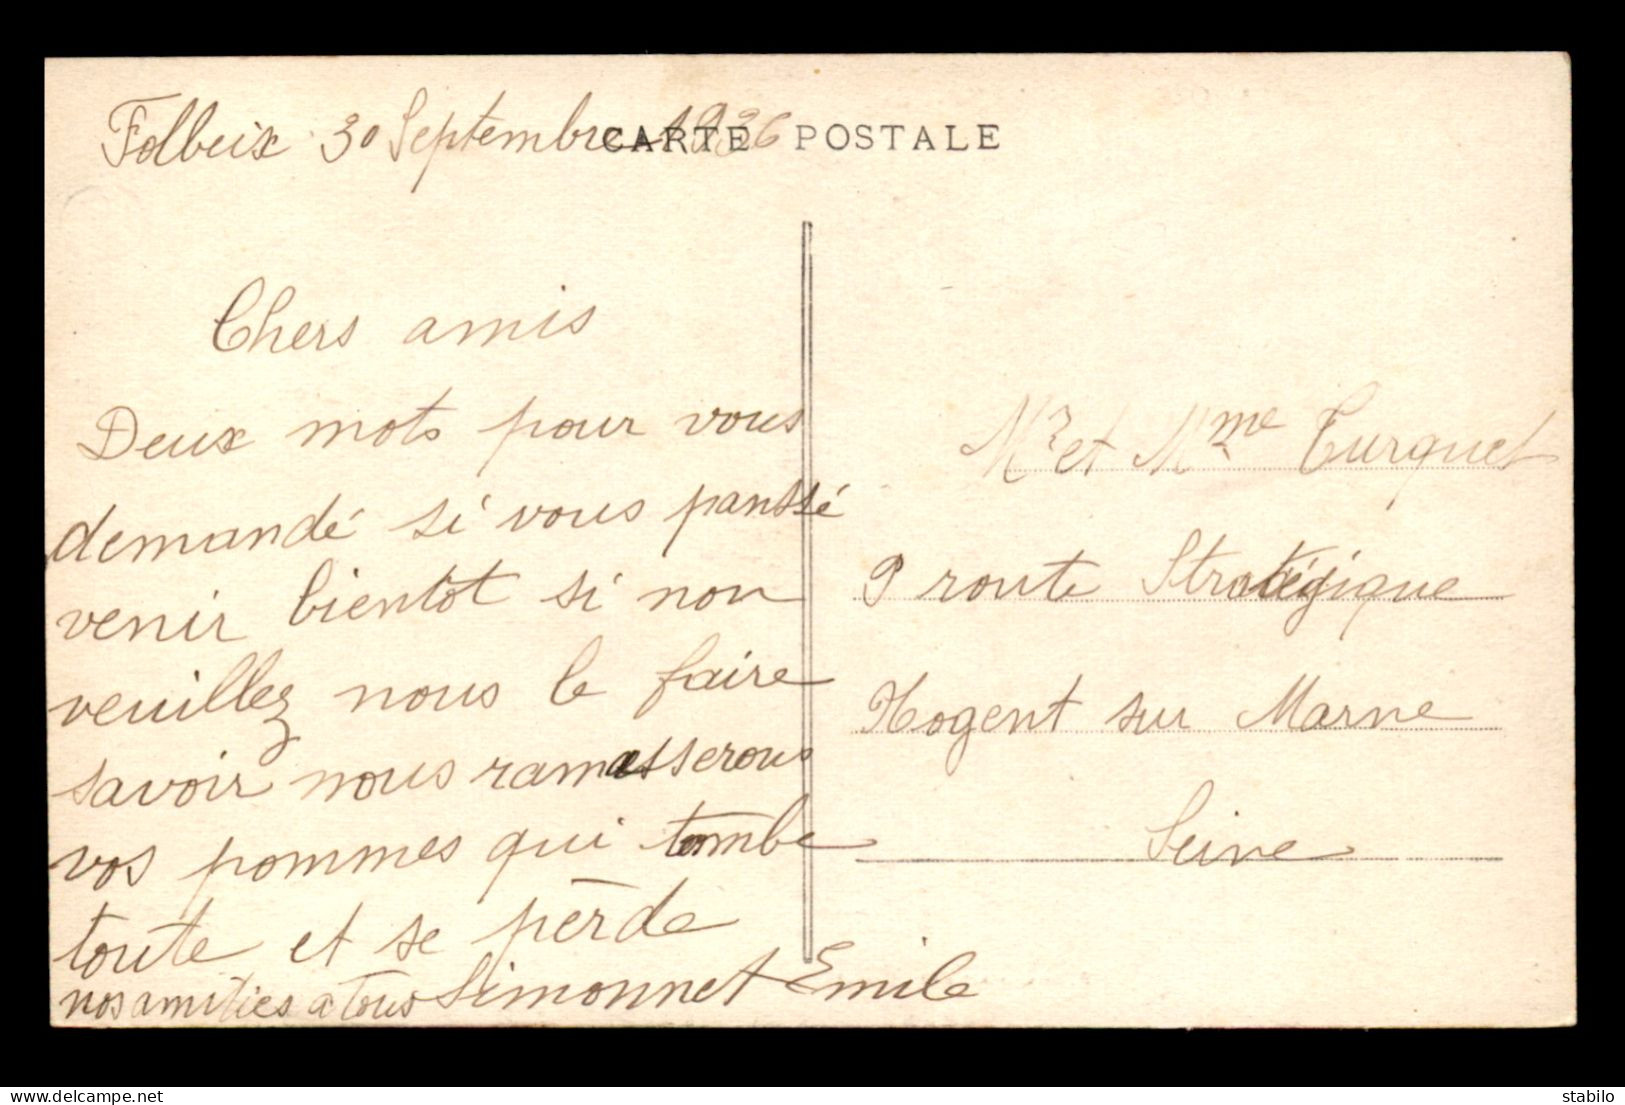 Folbeix 30 Septembre 1936
CARTE POSTALE
Chers amis
Deux mots pour vous
demandé si vous panssé
venir bientot si non
veuillez nous le faire
savoir nous ramasserous
vos pommes qui tombe
toute et se pèrde
nos amities a tous Simonnet Emile
Mr et Mme Turquet
9 route Stratégique
Nogent sur Marne
Seine
delcampe.net
stabilo